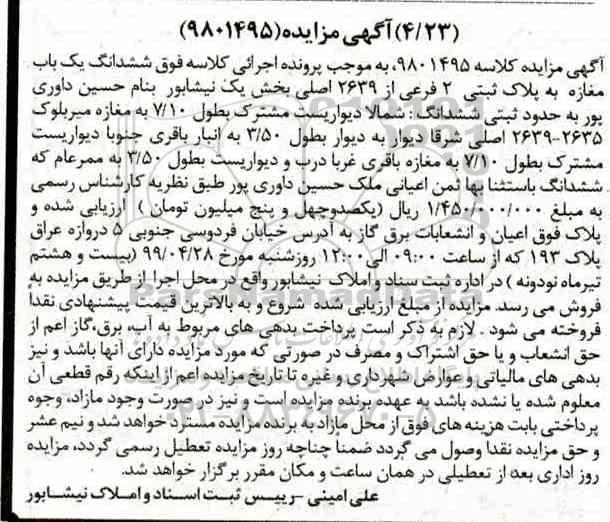 (۴/۲۳)آگهی مزایده(۹۸۰۱۴۹۵)
آگهی مزایده کلاسه ۹۸۰۱۴۹۵، به موجب پرونده اجرائی کلاسه فوق ششدانگ یک باب
مغازه به پلاک ثبتی ۲ فرعی از ۲۶۳۹ اصلی بخش یک نیشابور بنام حسین داوری
پور به حدود ثبتی ششدانگ : شمالا دیواریست مشترک بطول ۷/۱۰ به مغازه میربلوک
۲۶۳۵-۲۶۳۹ اصلی شرقا دیوار به دیوار بطول ۳/۵۰ به انبار باقری جنوبا دیواریست
مشترک بطول ۷/۱۰ به مغازه باقری غربا درب و دیواریست بطول ۳/۵۰ به ممرعام که
ششدانگ باستثنا بها ثمن اعیانی ملک حسین داوری پور طبق نظریه کارشناس رسمی
به مبلغ ۱/۴۵۰/۰۰۰/۰۰۰ ریال (یکصدوچهل و پنج میلیون تومان ) ارزیابی شده و
پلاک فوق اعیان و انشعابات برق گاز به آدرس خیابان فردوسی جنوبی ۵ دروازه عراق
پلاک ۱۹۳ که از ساعت ۰۹:۰۰ الی ۱۲:۰۰ روزشنبه مورخ ۹۹/۰۴/۲۸ (بیست و هشتم
تیرماه نودونه ) در اداره ثبت سناد و املاک نیشابور واقع در محل اجرا از طریق مزایده به
فروش می رسد. مزایده از مبلغ ارزیابی شده شروع و به بالاترین قیمت پیشنهادی نقدا
فروخته می شود . لازم به ذکر است پرداخت بدهی های مربوط به آب، برق،گاز اعم از
حق انشعاب و یا حق اشتراک و مصرف در صورتی که مورد مزایده دارای آنها باشد و نیز
بدهی های مالیاتی و عوارض شهرداری و غیره تا تاریخ مزایده اعم از اینکه رقم قطعی آن
معلوم شده یا نشده باشد به عهده برنده مزایده است و نیز در صورت وجود مازاد، وجوه
پرداختی بابت هزینه های فوق از محل مازاد به برنده مزایده مسترد خواهد شد و نیم عشر
و حق مزایده نقدا وصول می گردد ضمنا چناچه روز مزایده تعطیل رسمی گردد، مزایده
روز اداری بعد از تعطیلی در همان ساعت و مکان مقرر برگزار خواهد شد.
علی امینی -رییس ثبت اسناد و املاک نیشابور